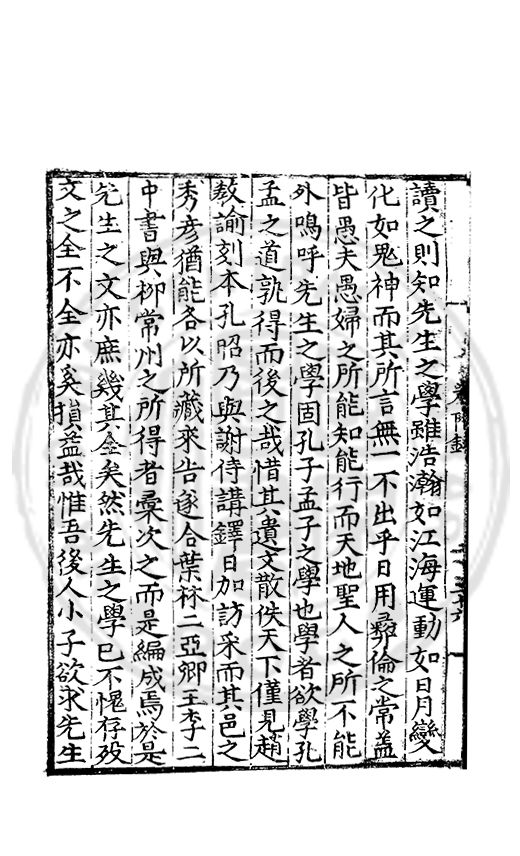 讀之則知先生之學雖浩瀚如江海運動如日月變
化如鬼神而其所言無一不出乎日用彝倫之常蓋
皆愚夫愚婦之所能知能行而天地聖人之所不能
外嗚呼先生之學固孔子孟子之學也學者欲學孔
孟之道孰得而後之哉惜其遺文散佚天下僅見趙
敎諭刻本孔昭乃與謝侍講鐸日加訪采而其邑之
秀彦猶能各以所藏來告遂合葉祢二亞卿王李二
中書與柳常州之所得者彙次之而是編成焉於是
先生之文亦庶幾其全矣然先生之學已不愧存歿
文之全不全亦奚損益哉惟吾後人小子欲求先生
卷附錄